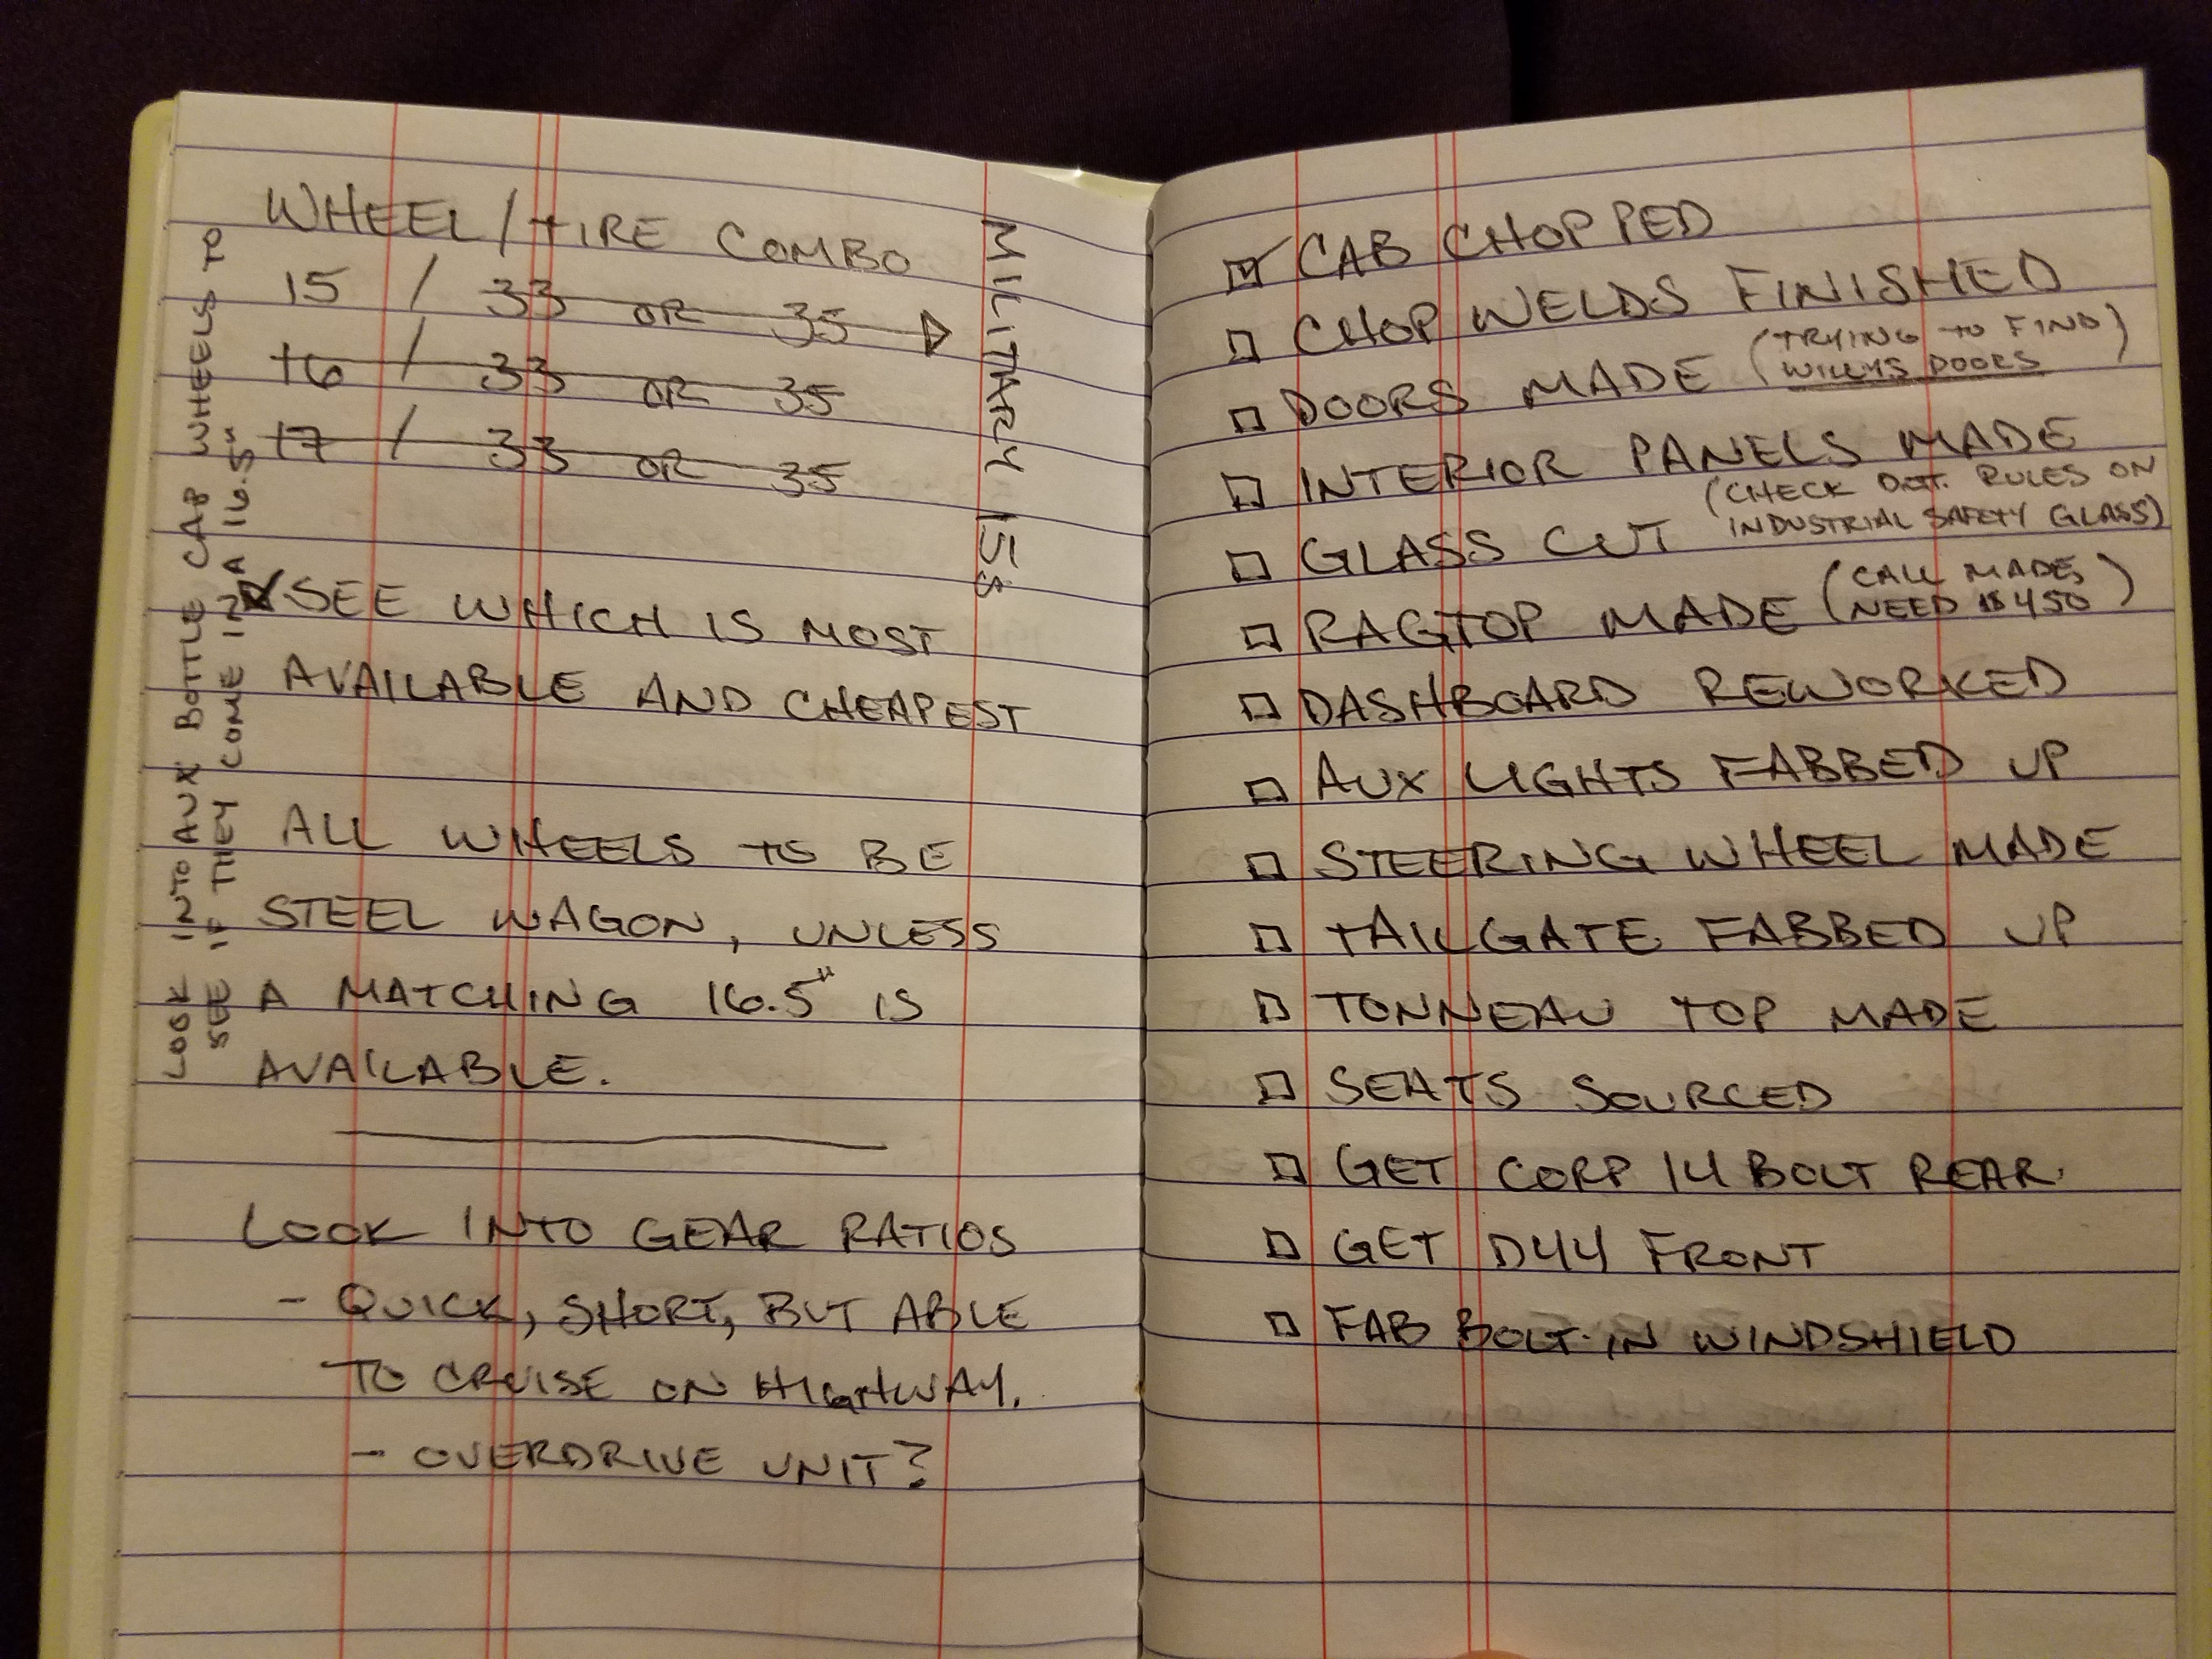 WHEEL/TIRE COMBO
15 / 33 OR 35
16 / 33 OR 35
17 / 33 OR 35
MILITARY 15s
SEE WHICH IS MOST
AVAILABLE AND CHEAPEST
ALL WHEELS TO BE
STEEL WAGON, UNLESS
A MATCHING 16.5" IS
AVAILABLE.
LOOK INTO GEAR RATIOS
- QUICK, SHORT, BUT ABLE
TO CRUISE ON HIGHWAY.
- OVERDRIVE UNIT?
LOOK INTO AUX BOTTLE CAP WHEELS
SEE IF THEY COME IN A 16.5"
CAB CHOPPED
CHOP WELDS FINISHED
DOORS MADE (TRYING TO FIND)
WILLYS DOORS
INTERIOR PANELS MADE
GLASS CUT (CHECK D.O.T. RULES ON
INDUSTRIAL SAFETY GLASS)
RAGTOP MADE (CALL MADE,
NEED $450)
DASHBOARD REWORKED
AUX LIGHTS FABBED UP
STEERING WHEEL MADE
TAILGATE FABBED UP
TONNEAU TOP MADE
SEATS SOURCED
GET CORP 14 BOLT REAR
GET D44 FRONT
FAB BOLT-IN WINDSHIELD